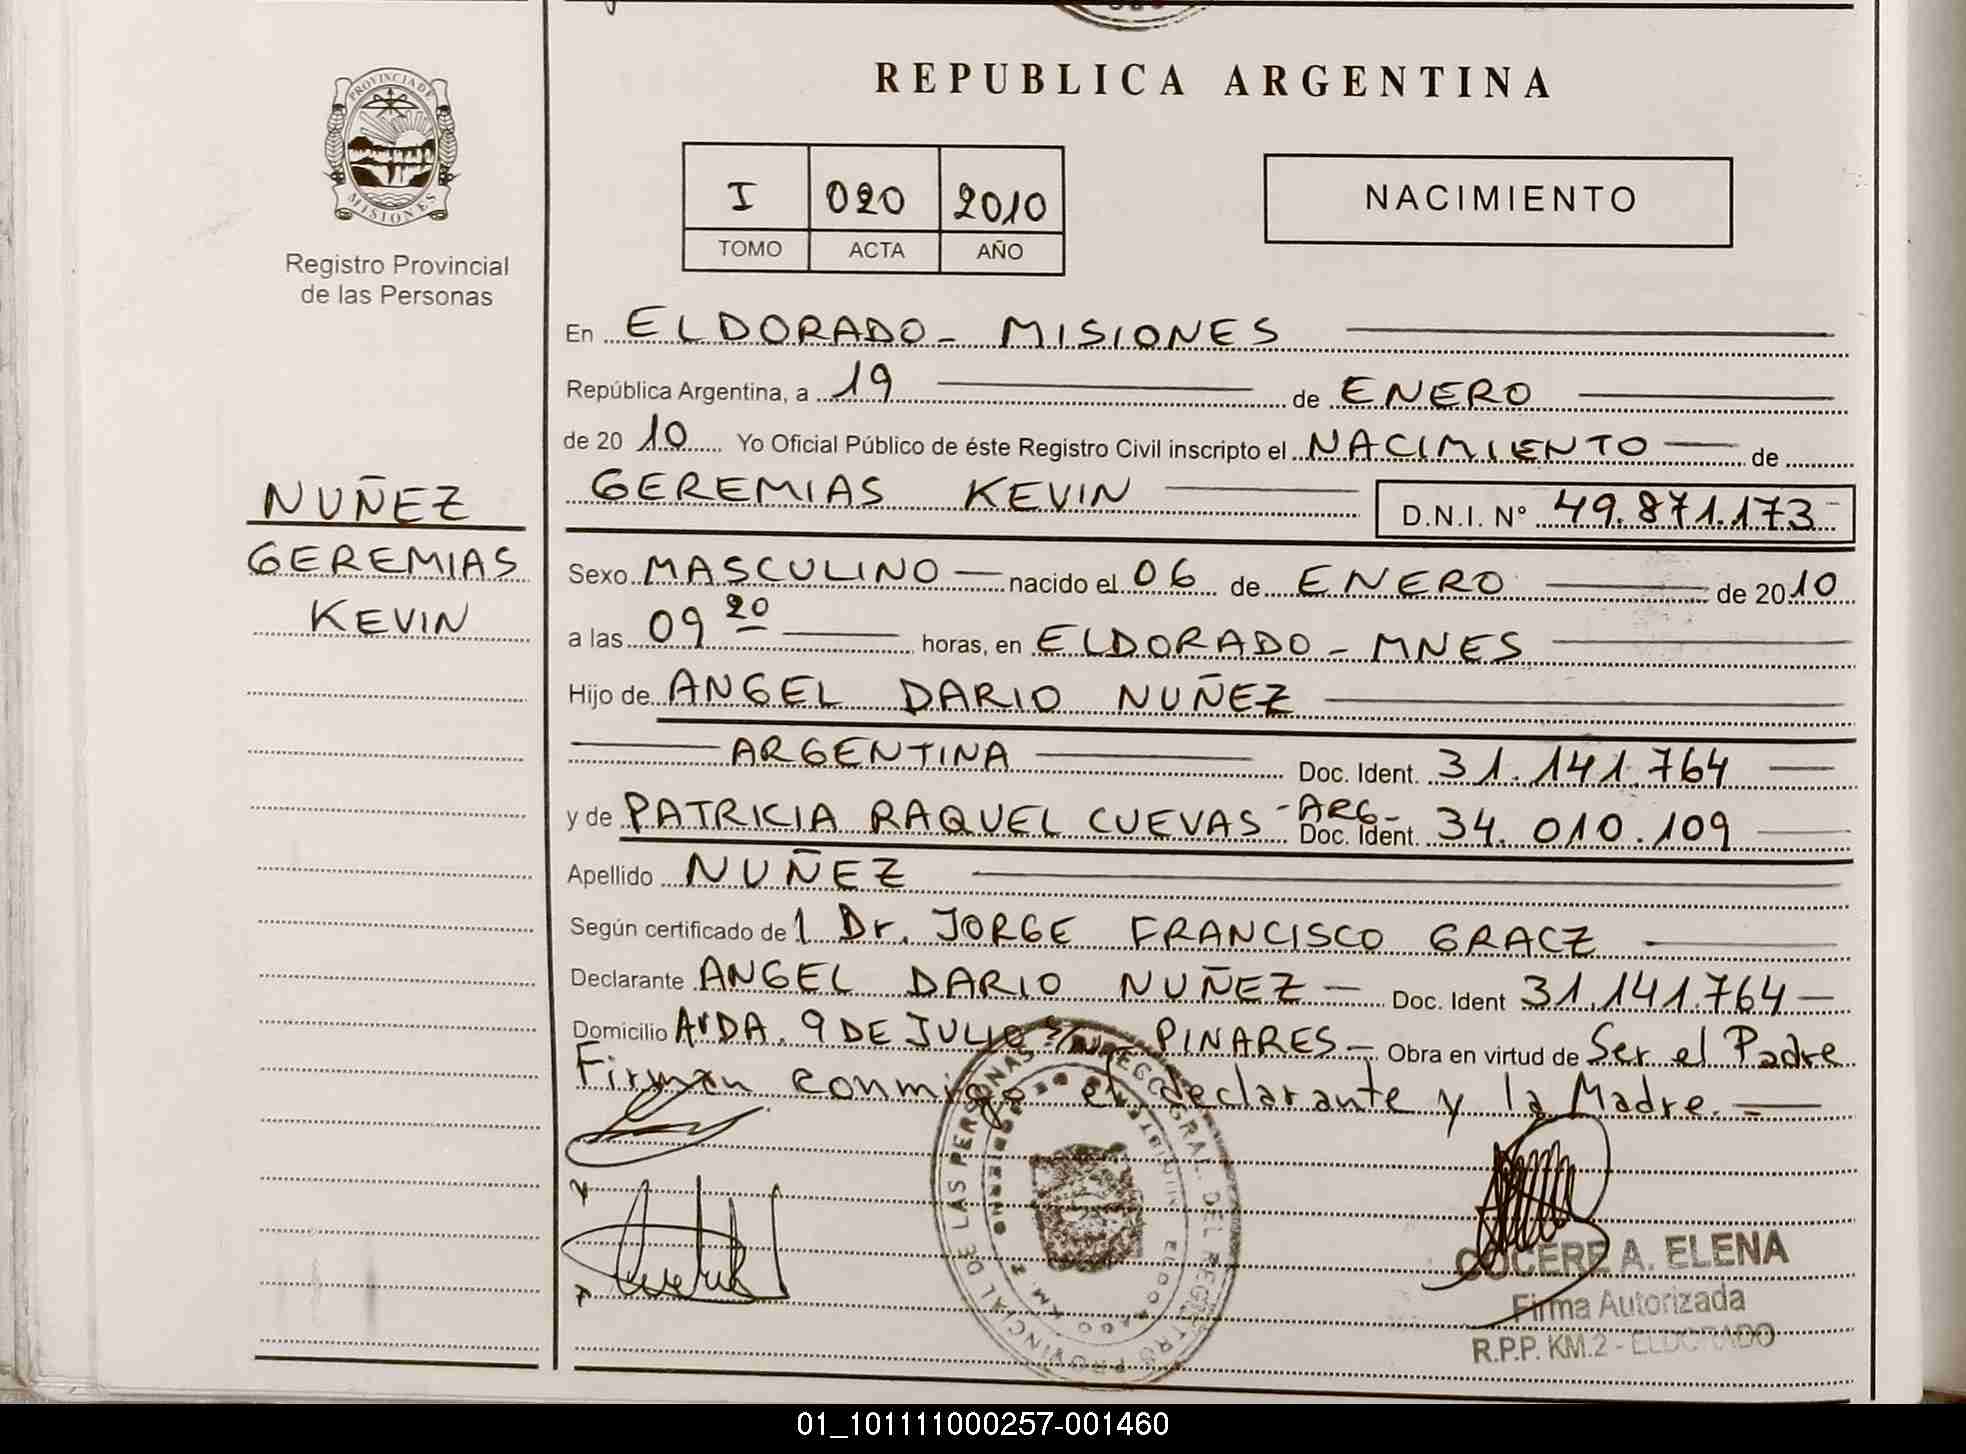 REPUBLICA ARGENTINA
PROVINCIA DE
MISIONES
I 020 2010
TOMO ACTA AÑO
NACIMIENTO
Registro Provincial
de las Personas
En ELDORADO - MISIONES
República Argentina, a 19 de ENERO
de 20 10 Yo Oficial Público de éste Registro Civil inscripto el NACIMIENTO de
GEREMIAS KEVIN D.N.I. Nº 49.871.173
NUÑEZ
GEREMIAS
KEVIN
Sexo MASCULINO nacido el 06 de ENERO de 20 10
a las 09 20 horas, en ELDORADO - MNES
Hijo de ANGEL DARIO NUÑEZ
ARGENTINA Doc. Ident. 31.141.764
y de PATRICIA RAQUEL CUEVAS - ARG - Doc. Ident. 34.010.109
Apellido NUÑEZ
Según certificado de l Dr. JORGE FRANCISCO GRACZ
Declarante ANGEL DARIO NUÑEZ - Doc. Ident 31.141.764
Domicilio AvDA. 9 DE JULIO S/N PINARES - Obra en virtud de Ser el Padre
Firman conmigo el declarante y la Madre.
COCERE A. ELENA
Firma Autorizada
R.P.P. KM.2 - ELDORADO
01_101111000257-001460